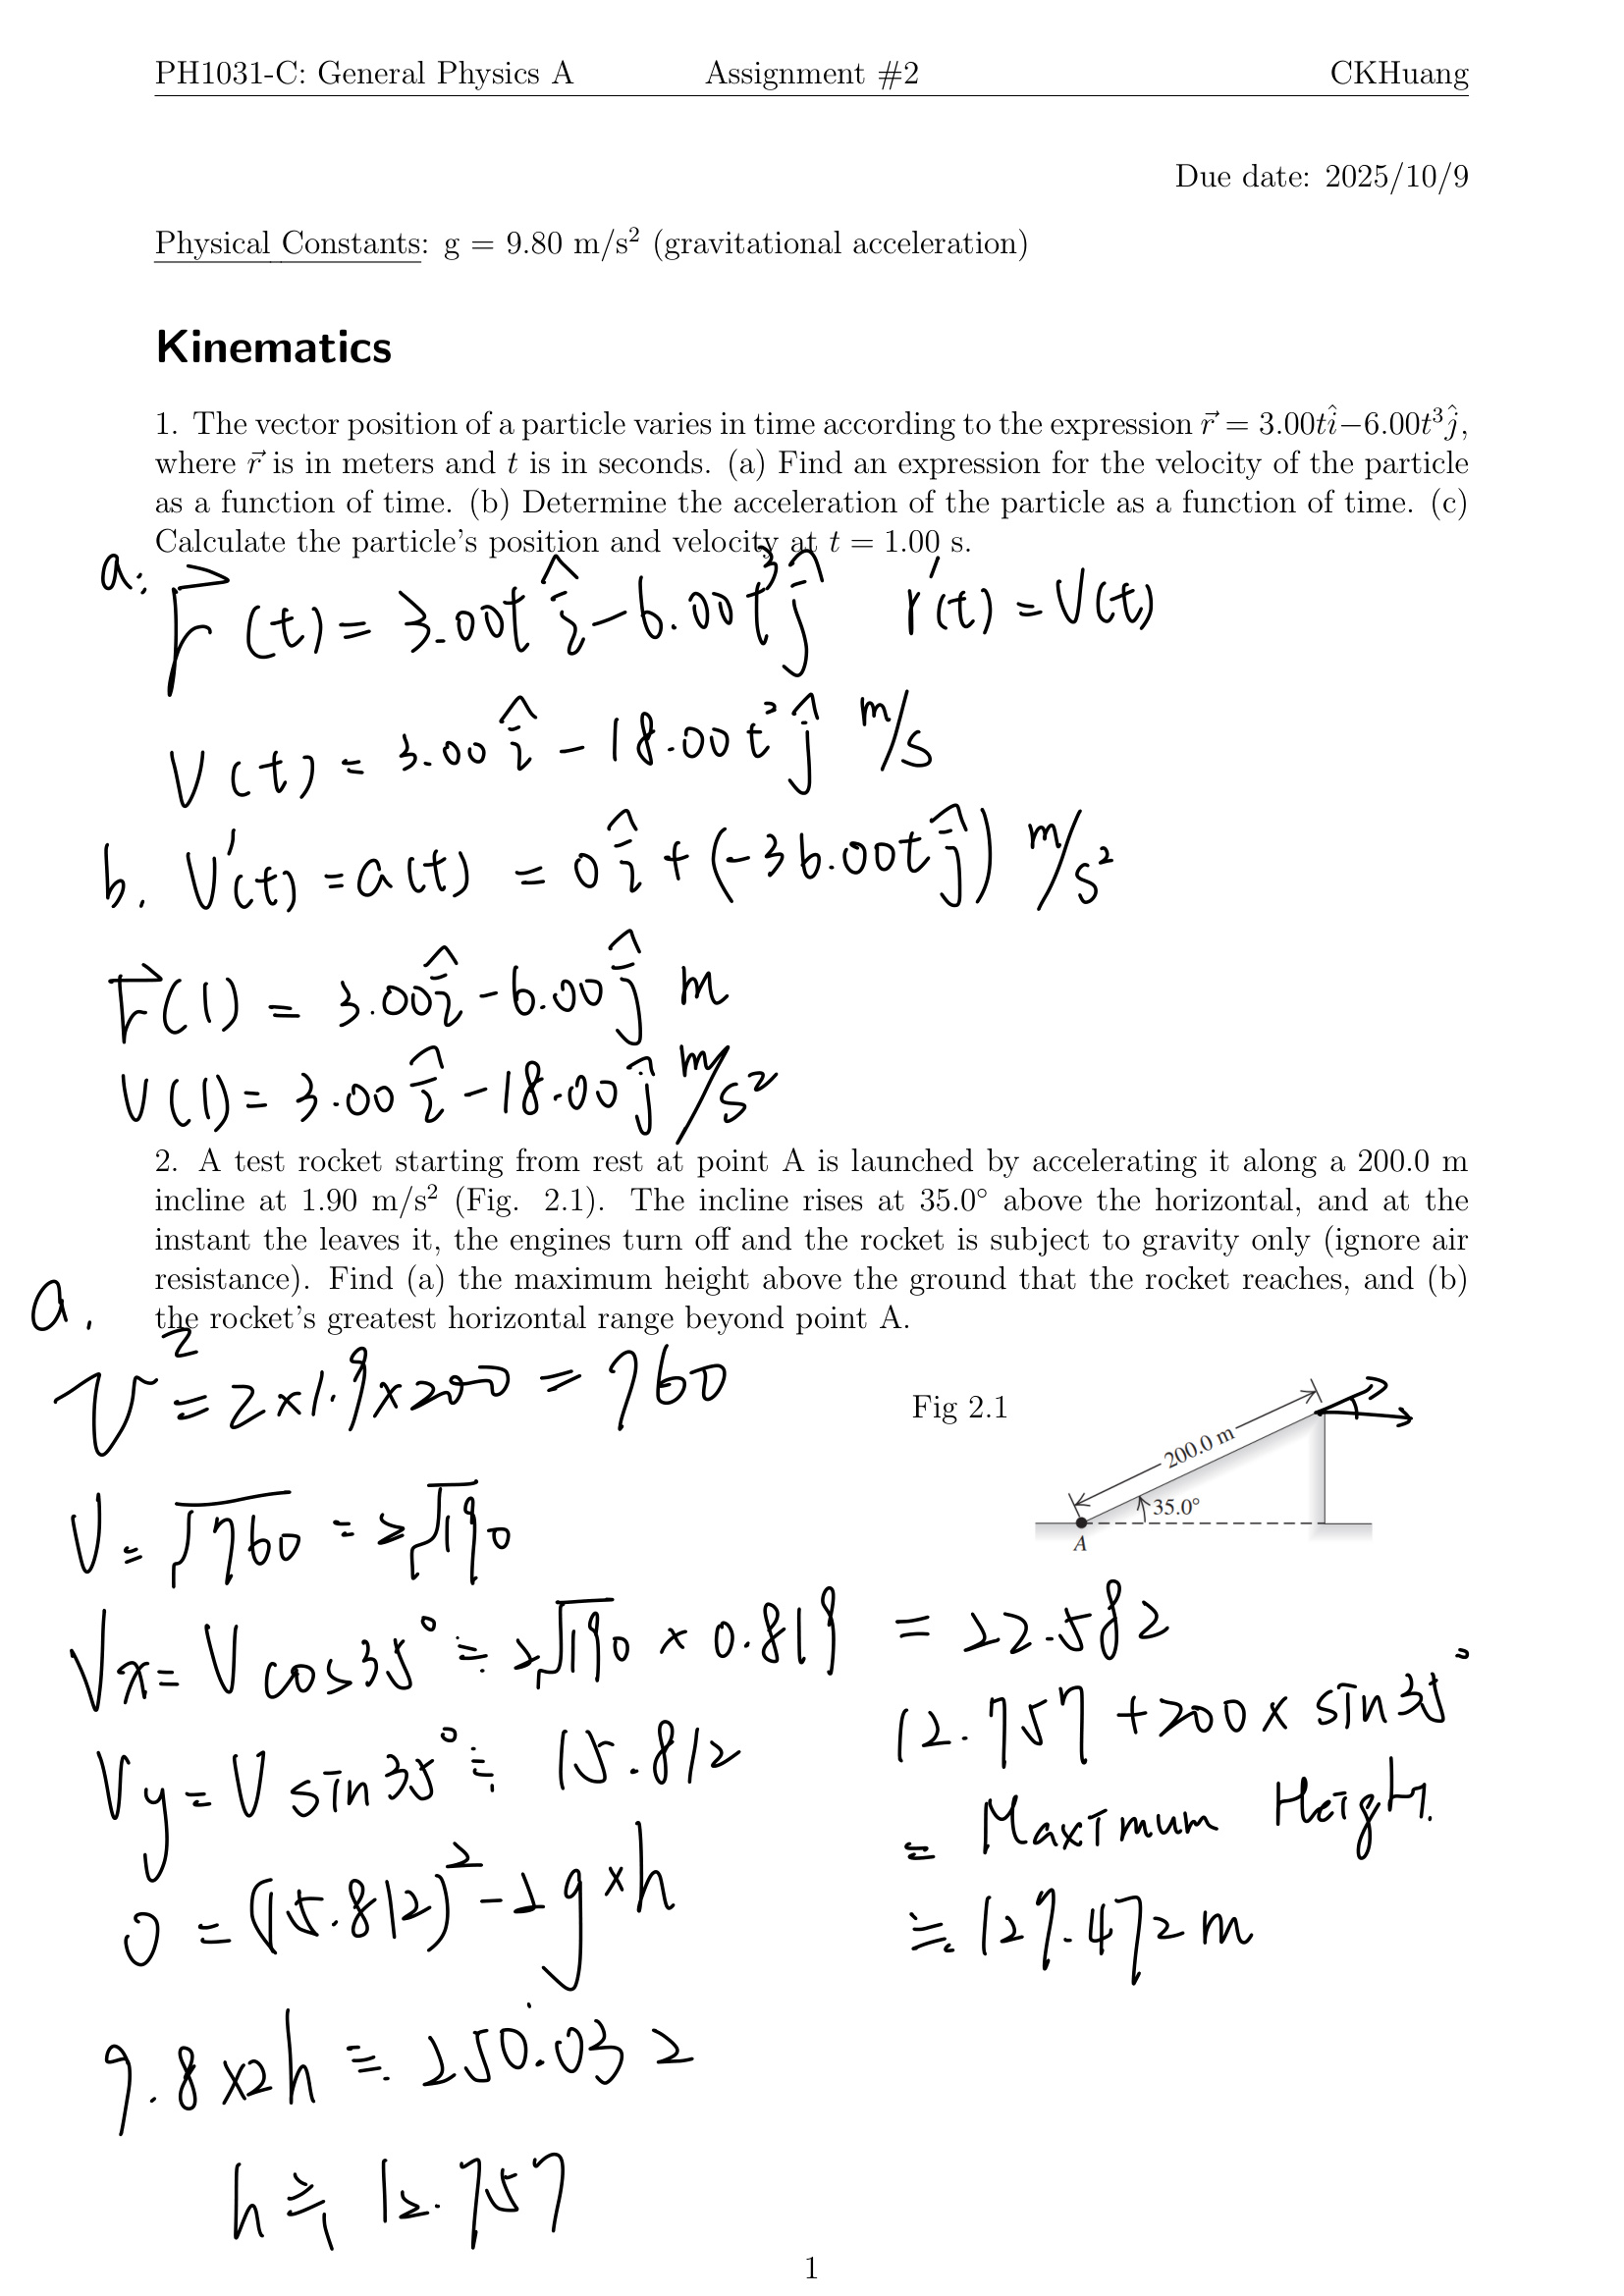 PH1031-C: General Physics A Assignment #2 CKHuang
Due date: 2025/10/9
Physical Constants: g = 9.80 m/s² (gravitational acceleration)
Kinematics
1. The vector position of a particle varies in time according to the expression r⃗ = 3.00tî−6.00t³ĵ,
where r⃗ is in meters and t is in seconds. (a) Find an expression for the velocity of the particle
as a function of time. (b) Determine the acceleration of the particle as a function of time. (c)
Calculate the particle's position and velocity at t = 1.00 s.
a: r⃗(t) = 3.00t î − 6.00t³ ĵ r'(t) = V(t)
V(t) = 3.00 î − 18.00t² ĵ m/s
b. V'(t) = a(t) = 0 î + (−36.00t ĵ) m/s²
r⃗(1) = 3.00 î − 6.00 ĵ m
V(1) = 3.00 î − 18.00 ĵ m/s²
2. A test rocket starting from rest at point A is launched by accelerating it along a 200.0 m
incline at 1.90 m/s² (Fig. 2.1). The incline rises at 35.0° above the horizontal, and at the
instant the leaves it, the engines turn off and the rocket is subject to gravity only (ignore air
resistance). Find (a) the maximum height above the ground that the rocket reaches, and (b)
the rocket's greatest horizontal range beyond point A.
a.
V² = 2×1.9×200 = 760
Fig 2.1
200.0 m
35.0°
A
V = √760 = 2√190
Vx = V cos35° ≒ 2√190 × 0.819 = 22.582
Vy = V sin35° ≒ 15.812
0 = (15.812)² − 2g×h
9.8×2h ≒ 250.032
h ≒ 12.757
12.757 + 200 × sin35°
= Maximum Height.
≒ 127.472 m
1